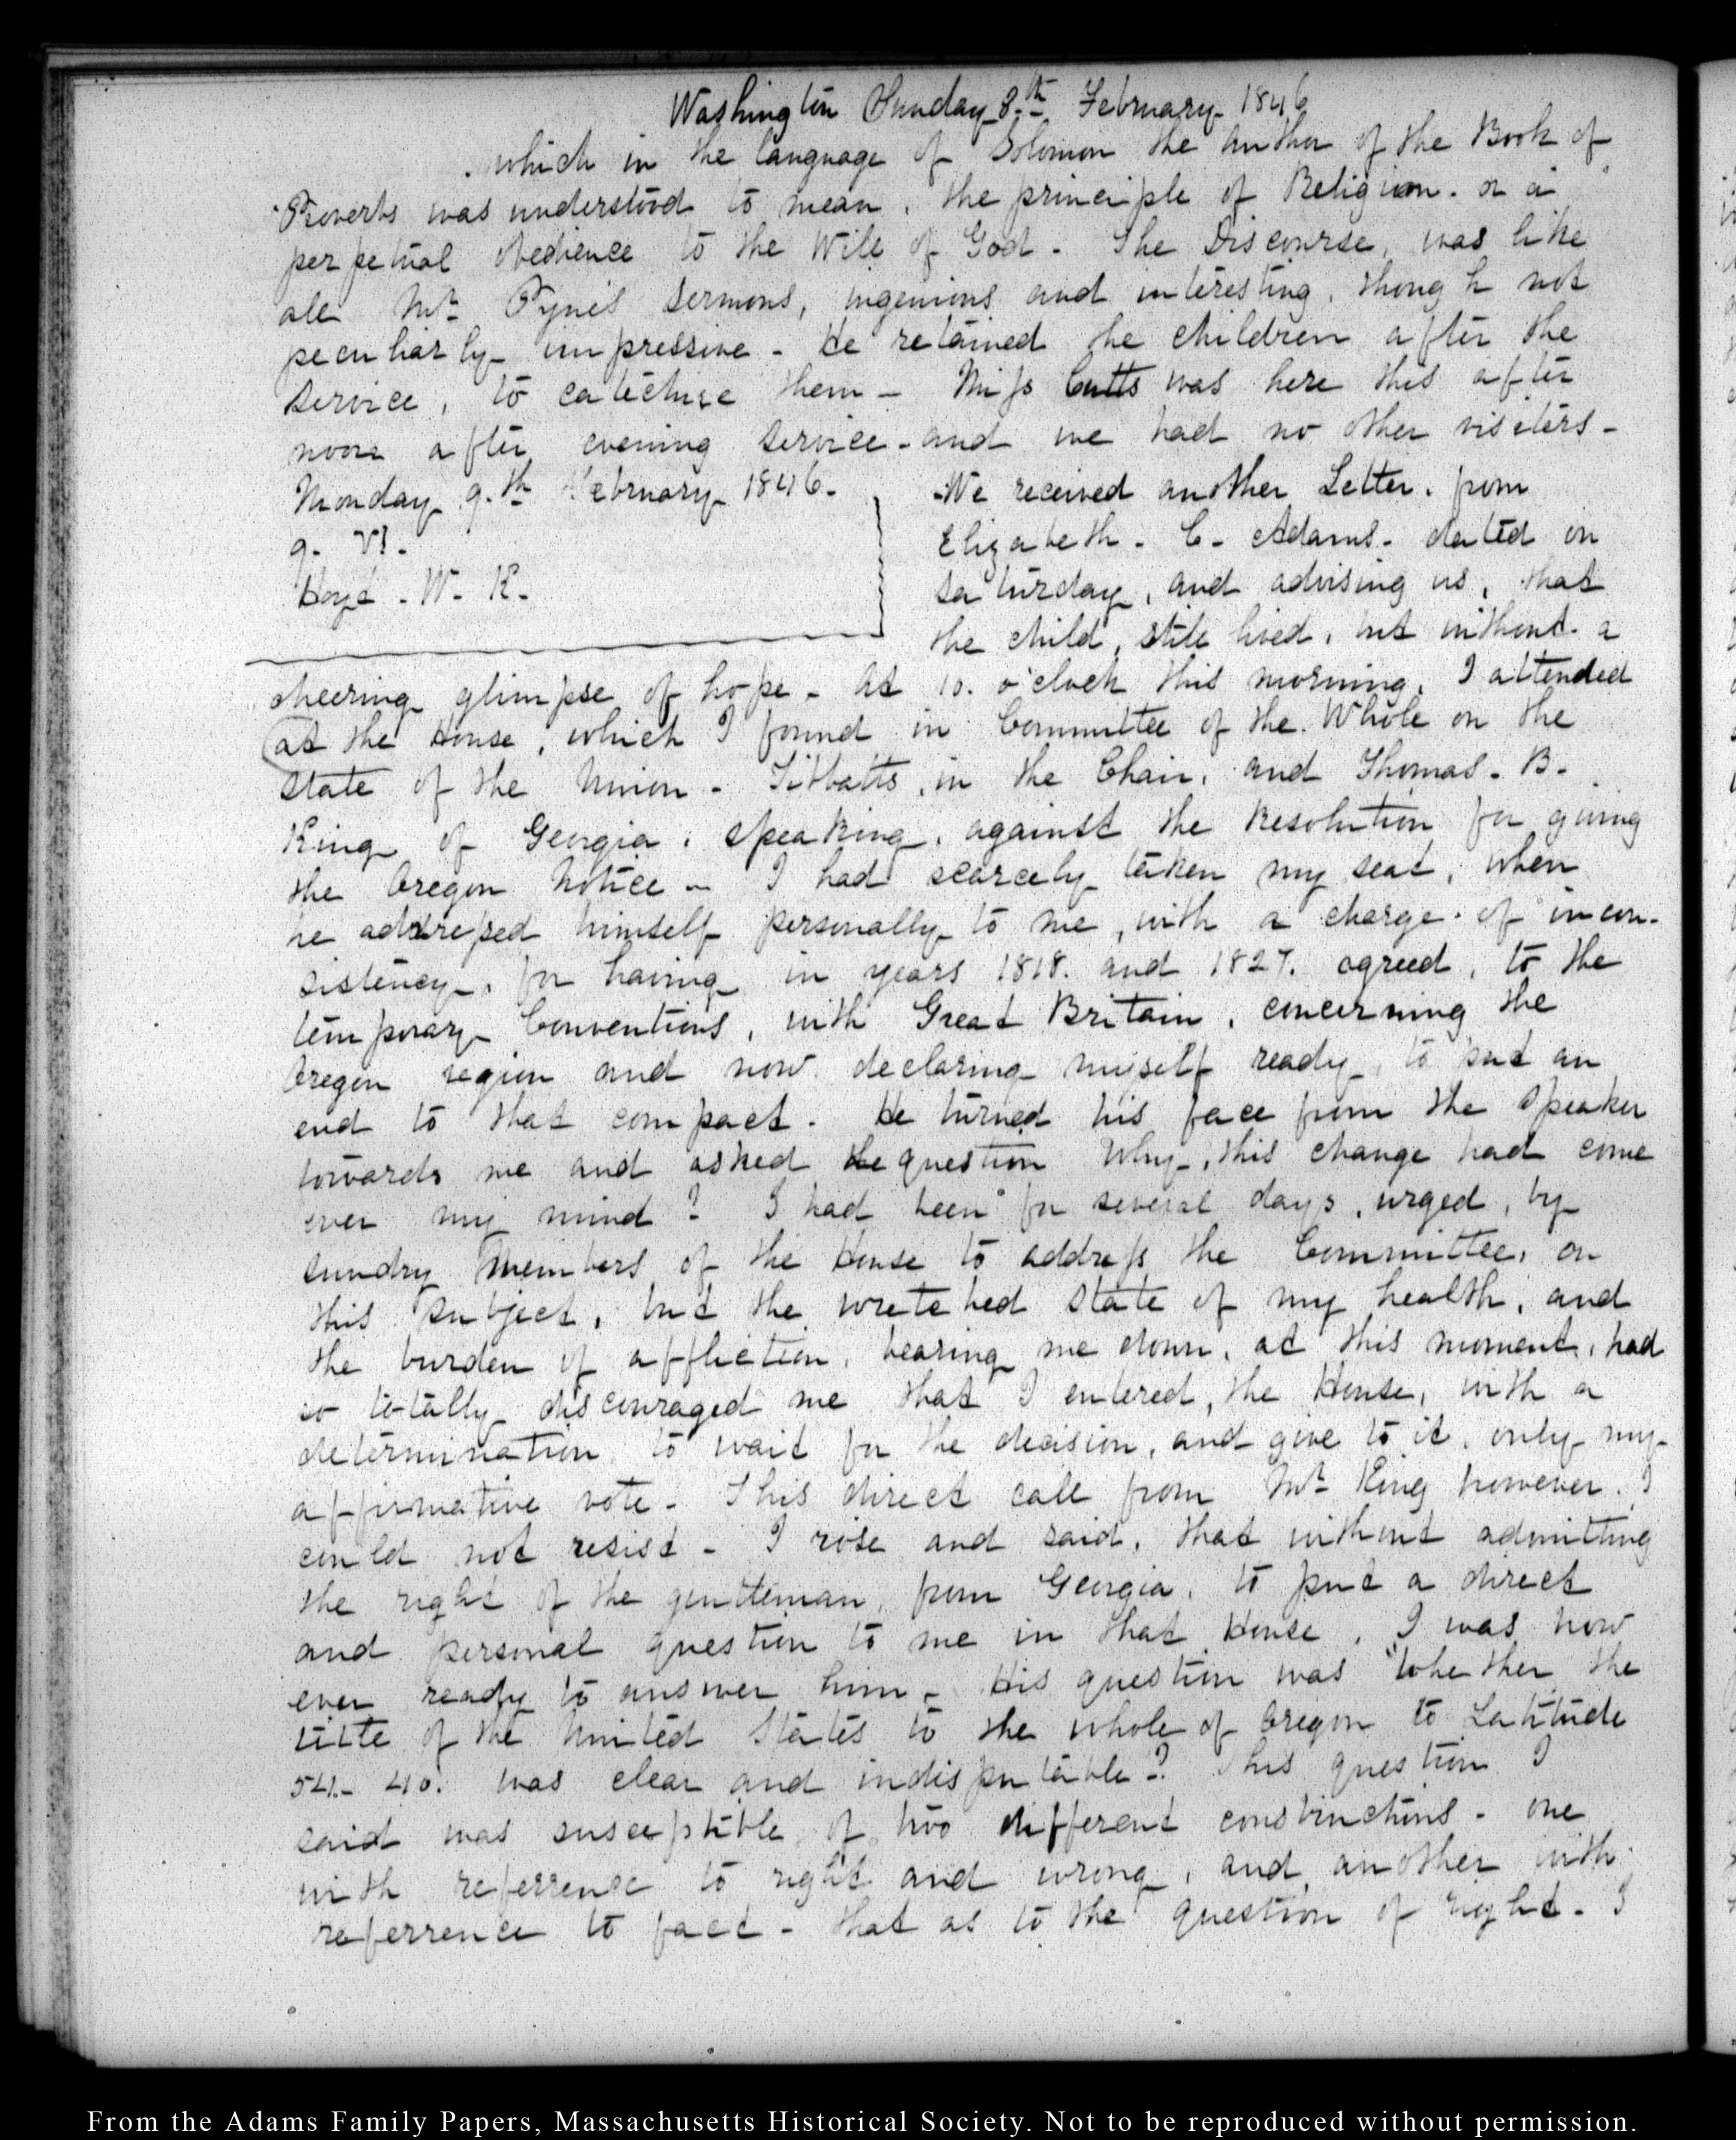 Washington Sunday 8.th February 1846
which in the language of Solomon the author of the Book of
Proverbs was understood to mean, the principle of Religion. or a
perpetual obedience to the Will of God - The Discourse, was like
all Mr Pyne's sermons, ingenious and interesting, though not
peculiarly impressive - He retained the children after the
service, to catechise them - Miss Cutts was here this after
noon after evening service - and we had no other visiters -
Monday 9.th February 1846.
9. VI.
Hoyt - W. K.
We received another Letter, from
Elizabeth - C - Adams - dated on
Saturday, and advising us, that
the child, still lived, but without a
cheering glimpse of hope - At 10. o'clock this morning, I attended
at the House, which I found in Committee of the Whole on the
State of the Union - Tibbatts, in the Chair, and Thomas - B -
King of Georgia, speaking, against the Resolution for giving
the Oregon Notice - I had scarcely taken my seat, when
he addressed himself personally to me, with a charge of incon-
sistency, for having in years 1818. and 1827. agreed, to the
temporary Conventions, with Great Britain, concerning the
Oregon region and now declaring myself ready, to put an
end to that compact. He turned his face from the Speaker
towards me and asked the question Why, this change had come
over my mind? I had been for several days, urged, by
sundry members of the House to address the Committee, on
this subject, but the wretched state of my health, and
the burden of affliction, bearing me down, at this moment, had
so totally discouraged me that I entered, the House, with a
determination to wait for the decision, and give to it, only my
affirmative vote - This direct call from Mr King however. I
could not resist - I rose and said, that without admitting
the right of the gentleman, from Georgia, to put a direct
and personal question to me in that House, I was how
ever ready to answer him - His question was "Whether the
title of the United States to the whole of Oregon to Latitude
54. 40. was clear and indisputable? This question I
said was susceptible of two different constructions - one
with referrence to right and wrong, and another with
referrence to fact - that as to the question of right - I
From the Adams Family Papers, Massachusetts Historical Society. Not to be reproduced without permission.